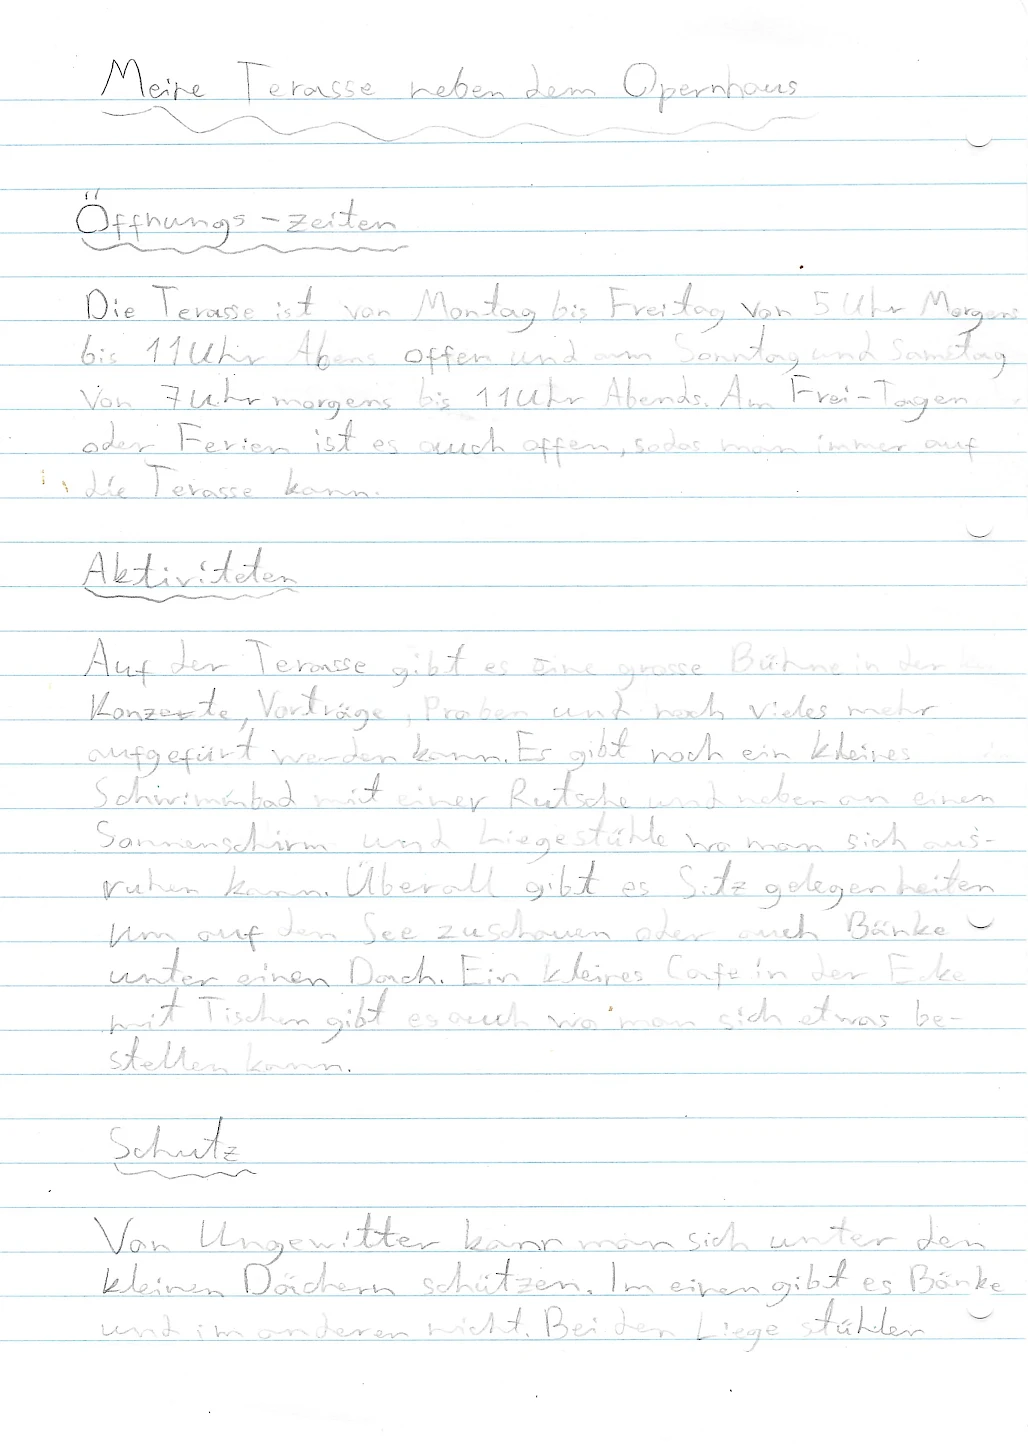 Meine Terasse neben dem Opernhaus
Öffnungs-zeiten
Die Terasse ist von Montag bis Freitag von 5 Uhr Morgens
bis 11 Uhr Abens offen und am Sonntag und Samstag
von 7 Uhr morgens bis 11 Uhr Abends. Am Frei-Tagen
oder Ferien ist es auch offen, sodas man immer auf
die Terasse kann.
Aktiviteten
Auf der Terasse gibt es eine grosse Bühne in der
Konzerte, Vorträge, Proben und noch vieles mehr
aufgefürt werden kann. Es gibt noch ein kleines
Schwimmbad mit einer Rutsche und neben an einen
Sonnenschirm und Liegestühle wo man sich aus-
ruhen kann. Überall gibt es Sitz gelegenheiten
um auf den See zuschauen oder auch Bänke
unter einen Dach. Ein kleines Cafe in der Ecke
mit Tischen gibt es auch wo man sich etwas be-
stellen kann.
Schutz
Von Ungewitter kann man sich unter den
kleinen Dächern schützen. Im einen gibt es Bänke
und im anderen nicht. Bei den Liege stühlen